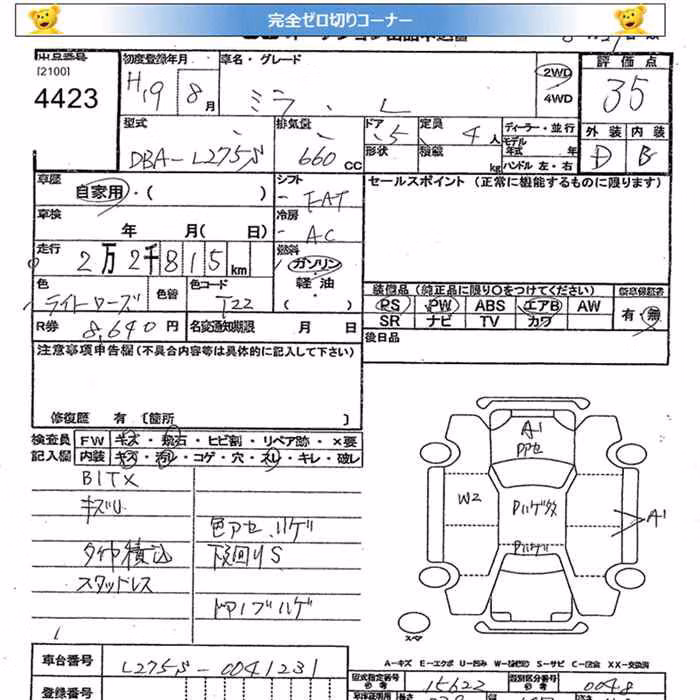 完全ゼロ切りコーナー
出品番号
[2100]
4423
初度登録年月
H19 8月
車名・グレード
ミラ . L
2WD
4WD
評価点
35
型式
DBA-L275S
排気量
660 CC
ドア 5
形状
定員 4人
積載 kg
ディーラー・並行
モデル年式 年
ハンドル 左・右
外装 内装
D B
車歴
自家用・( )
シフト
FAT
セールスポイント (正常に機能するものに限ります)
車検
年 月( 日)
冷房
AC
走行
2万2千815km
燃料
ガソリン・
軽油・
( )
色
ライトローズ
色替
色コード
T22
装備品 (純正品に限り○をつけてください)
PS PW ABS エアB AW
SR ナビ TV カワ
新車保証書
有・無
R券 8,640円
名変通知期限 月 日
後日品
注意事項申告欄(不具合内容等は具体的に記入して下さい)
修復歴 有 〔箇所 〕
検査員 FW キズ・飛石・ヒビ割・リペア跡・×要
記入欄 内装 キズ・汚レ・コゲ・穴・スレ・キレ・破レ
BITX
キズU
色アセ、ハゲ
タイヤ積込
下廻りS
スタッドレス
ドアノブハゲ
A1
W2
A1
スペア
車台番号 L275S-0041231
A-キズ E-エクボ U-凹み W-補修跡 S-サビ C-腐食 XX-交換済
型式指定番号 15622
類別区分番号 0048
登録番号